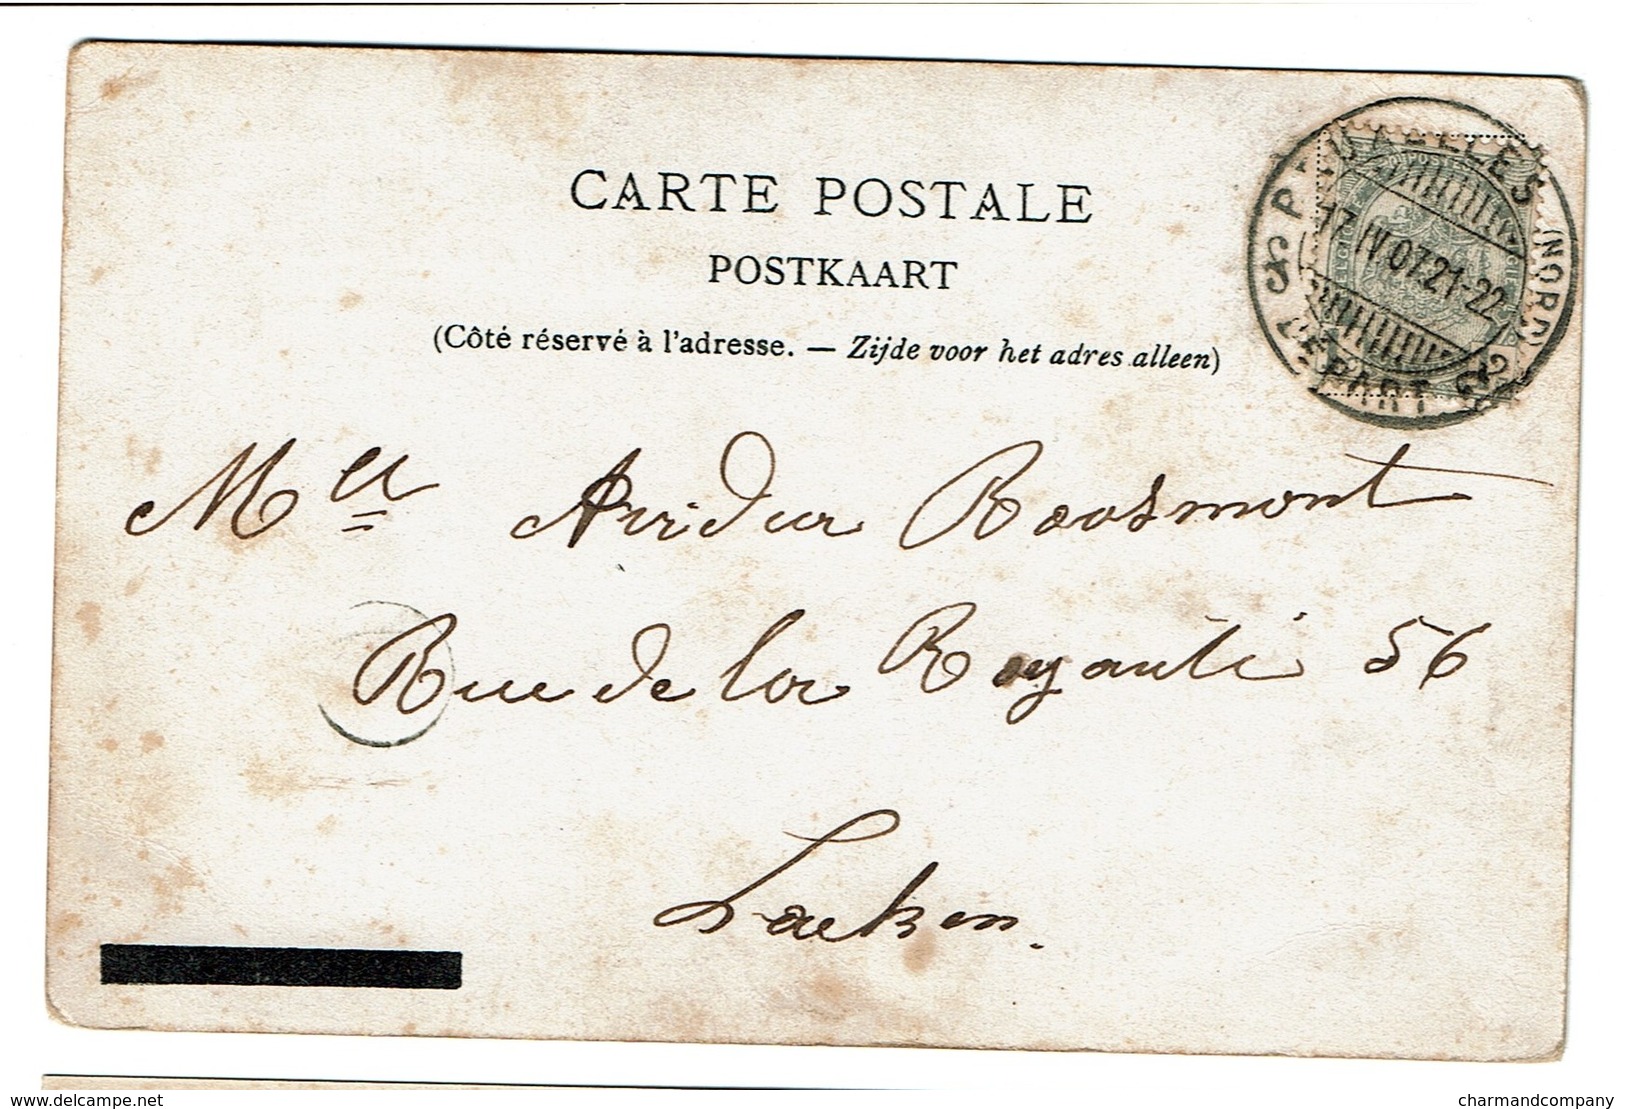 CARTE POSTALE
POSTKAART
(Côté réservé à l'adresse. — Zijde voor het adres alleen)
BRUXELLES (NORD)
17 IV 07.21-22
DÉPART
Mlle
Rue de la Royauté 56
Laeken.
delcampe.net
charmandcompany